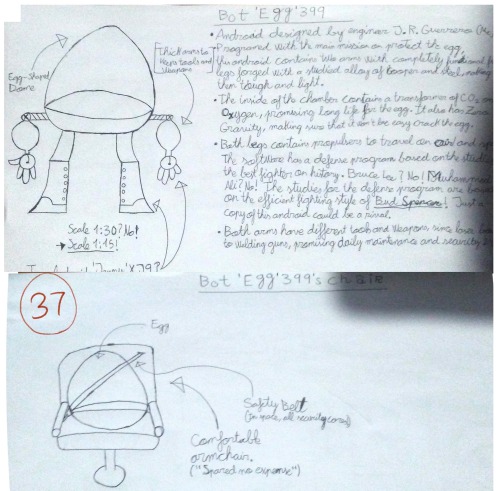 Bot 'Egg' 399
• Android designed by engineer J. R. Guerrero
Programed with the main mission on protect the egg,
this android contains two arms with completely functional
legs forged with a studied alloy of cooper and steel, making
them tough and light.
• The inside of the chamber contains a transformer of CO2
Oxygen, promising long life for the egg. It also has Zero
Gravity, making sure that it won't be easy crack the egg.
• Both legs contain propulsors to travel on air and
The software has a defense program based on the studies
the best fighter on history. Bruce Lee? No! Muhammad
Ali? No! The studies for the defense program are based
on the efficient fighting style of "Bud Spencer"! Just a
copy of this android could be a rival.
• Both arms have different tools and weapons, since laser
to welding guns, promising daily maintenance and security
Egg-Shaped
Dome
Thick arms to
keep tools and
weapons
Scale 1:30? No!
→ Scale 1:15!
37
Bot 'Egg' 399's chair
Egg
Safety Belt
(In space, all security comes)
Comfortable
armchair.
("Spared no expense")